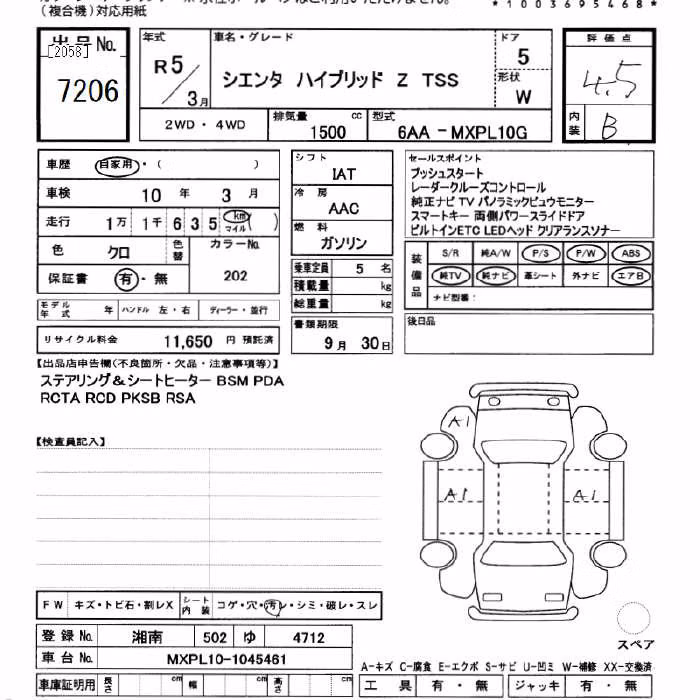 (複合機)対応用紙
*1003695468*
出品No.
[2058]
7206
年式
R5/3月
車名・グレード
シエンタ ハイブリッド Z TSS
ドア
5
形状
W
評価点
4.5
内装
B
2WD・4WD
排気量
1500 cc
型式
6AA-MXPL10G
車歴 自家用・( )
車検 10年 3月
走行 1万 1千 6 3 5 km マイル ( )
色 クロ 色替 カラーNo. 202
保証書 有・無
モデル年式 年 ハンドル 左・右 ディーラー・並行
リサイクル料金 11,650 円 預託済
シフト
IAT
冷房
AAC
燃料
ガソリン
乗車定員 5 名
積載量 kg
総重量 kg
書類期限
9月 30日
セールスポイント
プッシュスタート
レーダークルーズコントロール
純正ナビ TV パノラミックビュウモニター
スマートキー 両側パワースライドドア
ビルトインETC LEDヘッド クリアランスソナー
装備品
S/R 純A/W P/S P/W ABS
純TV 純ナビ 革シート 外ナビ エアB
ナビ型番:
後日品
【出品店申告欄(不良箇所・欠品・注意事項等)】
ステアリング&シートヒーター BSM PDA
RCTA RCD PKSB RSA
【検査員記入】
A1
A1
A1
FW キズ・トビ石・割レX シート内装 コゲ・穴・汚レ・シミ・破レ・スレ
登録No. 湘南 502 ゆ 4712
車台No. MXPL10-1045461
車庫証明用 長さ cm 幅 cm 高さ cm
スペア
A-キズ C-腐食 E-エクボ S-サビ U-凹ミ W-補修 XX-交換済
工具 有・無 ジャッキ 有・無